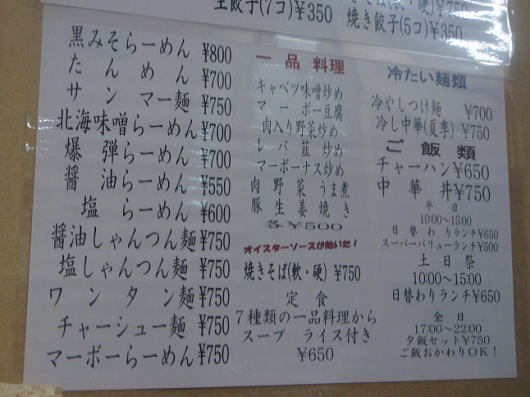 生餃子(7コ)¥350
焼き餃子(5コ)¥350
黒みそらーめん ¥800
たんめん ¥700
サンマー麺 ¥750
北海味噌らーめん ¥700
爆弾らーめん ¥700
醤油らーめん ¥550
塩らーめん ¥600
醤油しゃんつん麺 ¥750
塩しゃんつん麺 ¥750
ワンタン麺 ¥750
チャーシュー麺 ¥750
マーボーらーめん ¥750
一品料理
キャベツ味噌炒め
マーボー豆腐
肉入り野菜炒め
レバ韮炒め
マーボーナス炒め
肉野菜うま煮
豚生姜焼き
各¥500
オイスターソースが効いた!
焼きそば(軟・硬) ¥750
定食
7種類の一品料理から
スープ ライス付き
¥650
冷たい麺類
冷やしつけ麺 ¥700
冷し中華(夏季) ¥750
ご飯類
チャーハン ¥650
中華丼 ¥750
平日
10:00~15:00
日替わりランチ¥650
スーパーバリューランチ¥500
土日祭
10:00~15:00
日替わりランチ¥650
全日
17:00~22:00
夕飯セット¥750
ご飯おかわりOK!